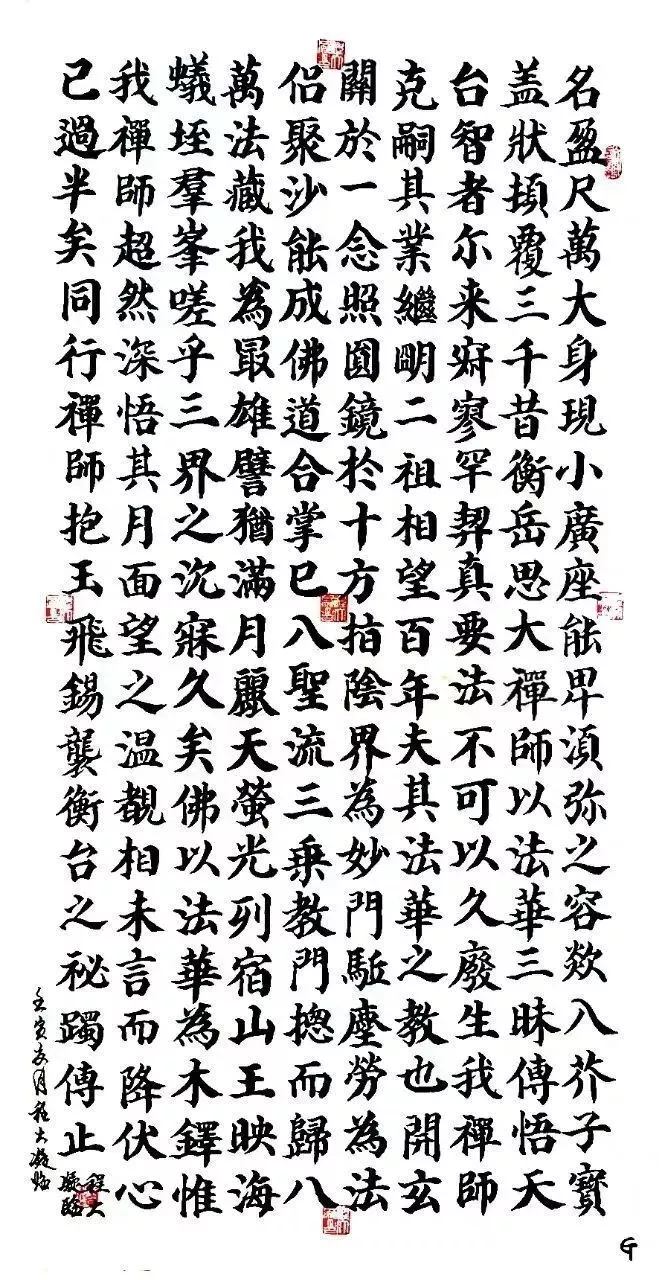 名盈尺萬大身現小廣座能卑須弥之容欻入芥子寶
盖狀頓覆三千昔衡岳思大禪師以法華三昧傳悟天
台智者尓来寂寥罕契真要法不可以久廢生我禪師
克嗣其業繼明二祖相望百年夫其法華之教也開玄
關於一念照圓鏡於十方指陰界為妙門駈塵勞為法
侶聚沙能成佛道合掌已入聖流三乗教門揔而歸八
萬法藏我為最雄譬猶滿月麗天螢光列宿山王映海
蟻垤羣峯嗟乎三界之沉寐久矣佛以法華為木鐸惟
我禪師超然深悟其月面望之温覩相未言而降伏心
已過半矣同行禪師抱玉飛錫襲衡台之祕躅傳止
壬寅
月程大凝臨
程大凝臨
G